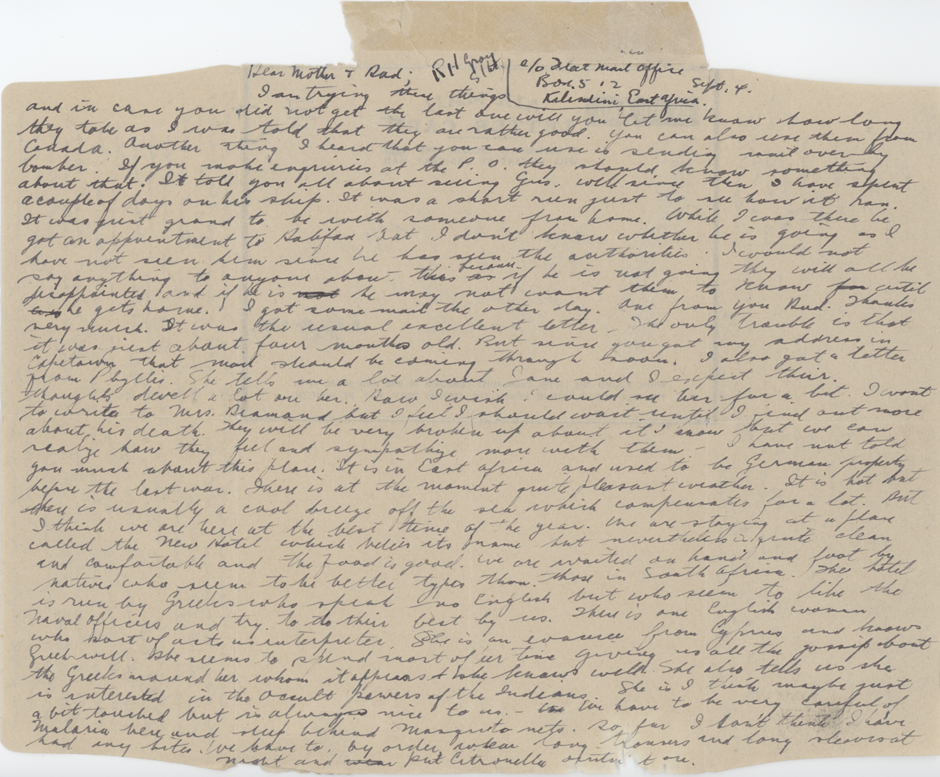 Dear Mother & Dad; R H Gray S/Lt. c/o Fleet Mail Office
Box 512 Sept. 4.
Kilindini East Africa.
I am trying these things
and in case you did not get the last one will you let me know how long
they take as I was told that they are rather good. You can also use them from
Canada. Another thing I heard that you can use is sending mail over by
bomber. If you make enquiries at the P. O. they should know something
about that. I told you all about seeing Gus. Well since then I have spent
a couple of days on his ship. It was a short run just to see how it ran.
It was just grand to be with someone from home. While I was there he
got an appointment to Halifax but I don't know whether he is going as I
have not seen him since he has seen the authorities. I would not
say anything to anyone about this because if he is not going they will all be
disappointed and if he is he may not want them to know until
he gets home. I got some mail the other day. One from you Dad. Thanks
very much. It was the usual excellent letter. The only trouble is that
it was just about four months old. But since you got my address in
Capetown that mail should be coming through soon. I also got a letter
from Phyllis. She tells me a lot about Jane and I expect their
thoughts dwell a lot on her. How I wish I could see her for a bit. I want
to write to Mrs. Diamand but I feel I should wait until I find out more
about his death. They will be very broken up about it I know but we can
realize how they feel and sympathize more with them - I have not told
you much about this place. It is in East Africa and used to be German property
before the last war. There is at the moment quite pleasant weather. It is hot but
there is usually a cool breeze off the sea which compensates for a lot. But
I think we are here at the best time of the year. We are staying at a place
called the New Hotel which belies its name but nevertheless is quite clean
and comfortable and the food is good. We are waited on hand and foot by
natives who seem to be better types than those in South Africa. The hotel
is run by Greeks who speak no English but who seem to like the
Naval officers and try to do their best by us. There is one English woman
who sort of acts as interpreter. She is an evacuee from Cyprus and knows
Greek well. She seems to spend most of her time giving us all the gossip about
the Greeks around her whom it appears she knows well. She also tells us she
is interested in the occult powers of the Indians. She is I think maybe just
a bit touched but is always nice to us. - We have to be very careful of
Malaria here and sleep behind Mosquito nets. So far I don't think I have
had any bites. We have to, by order, wear long trousers and long sleeves at
night and put Citronella on.